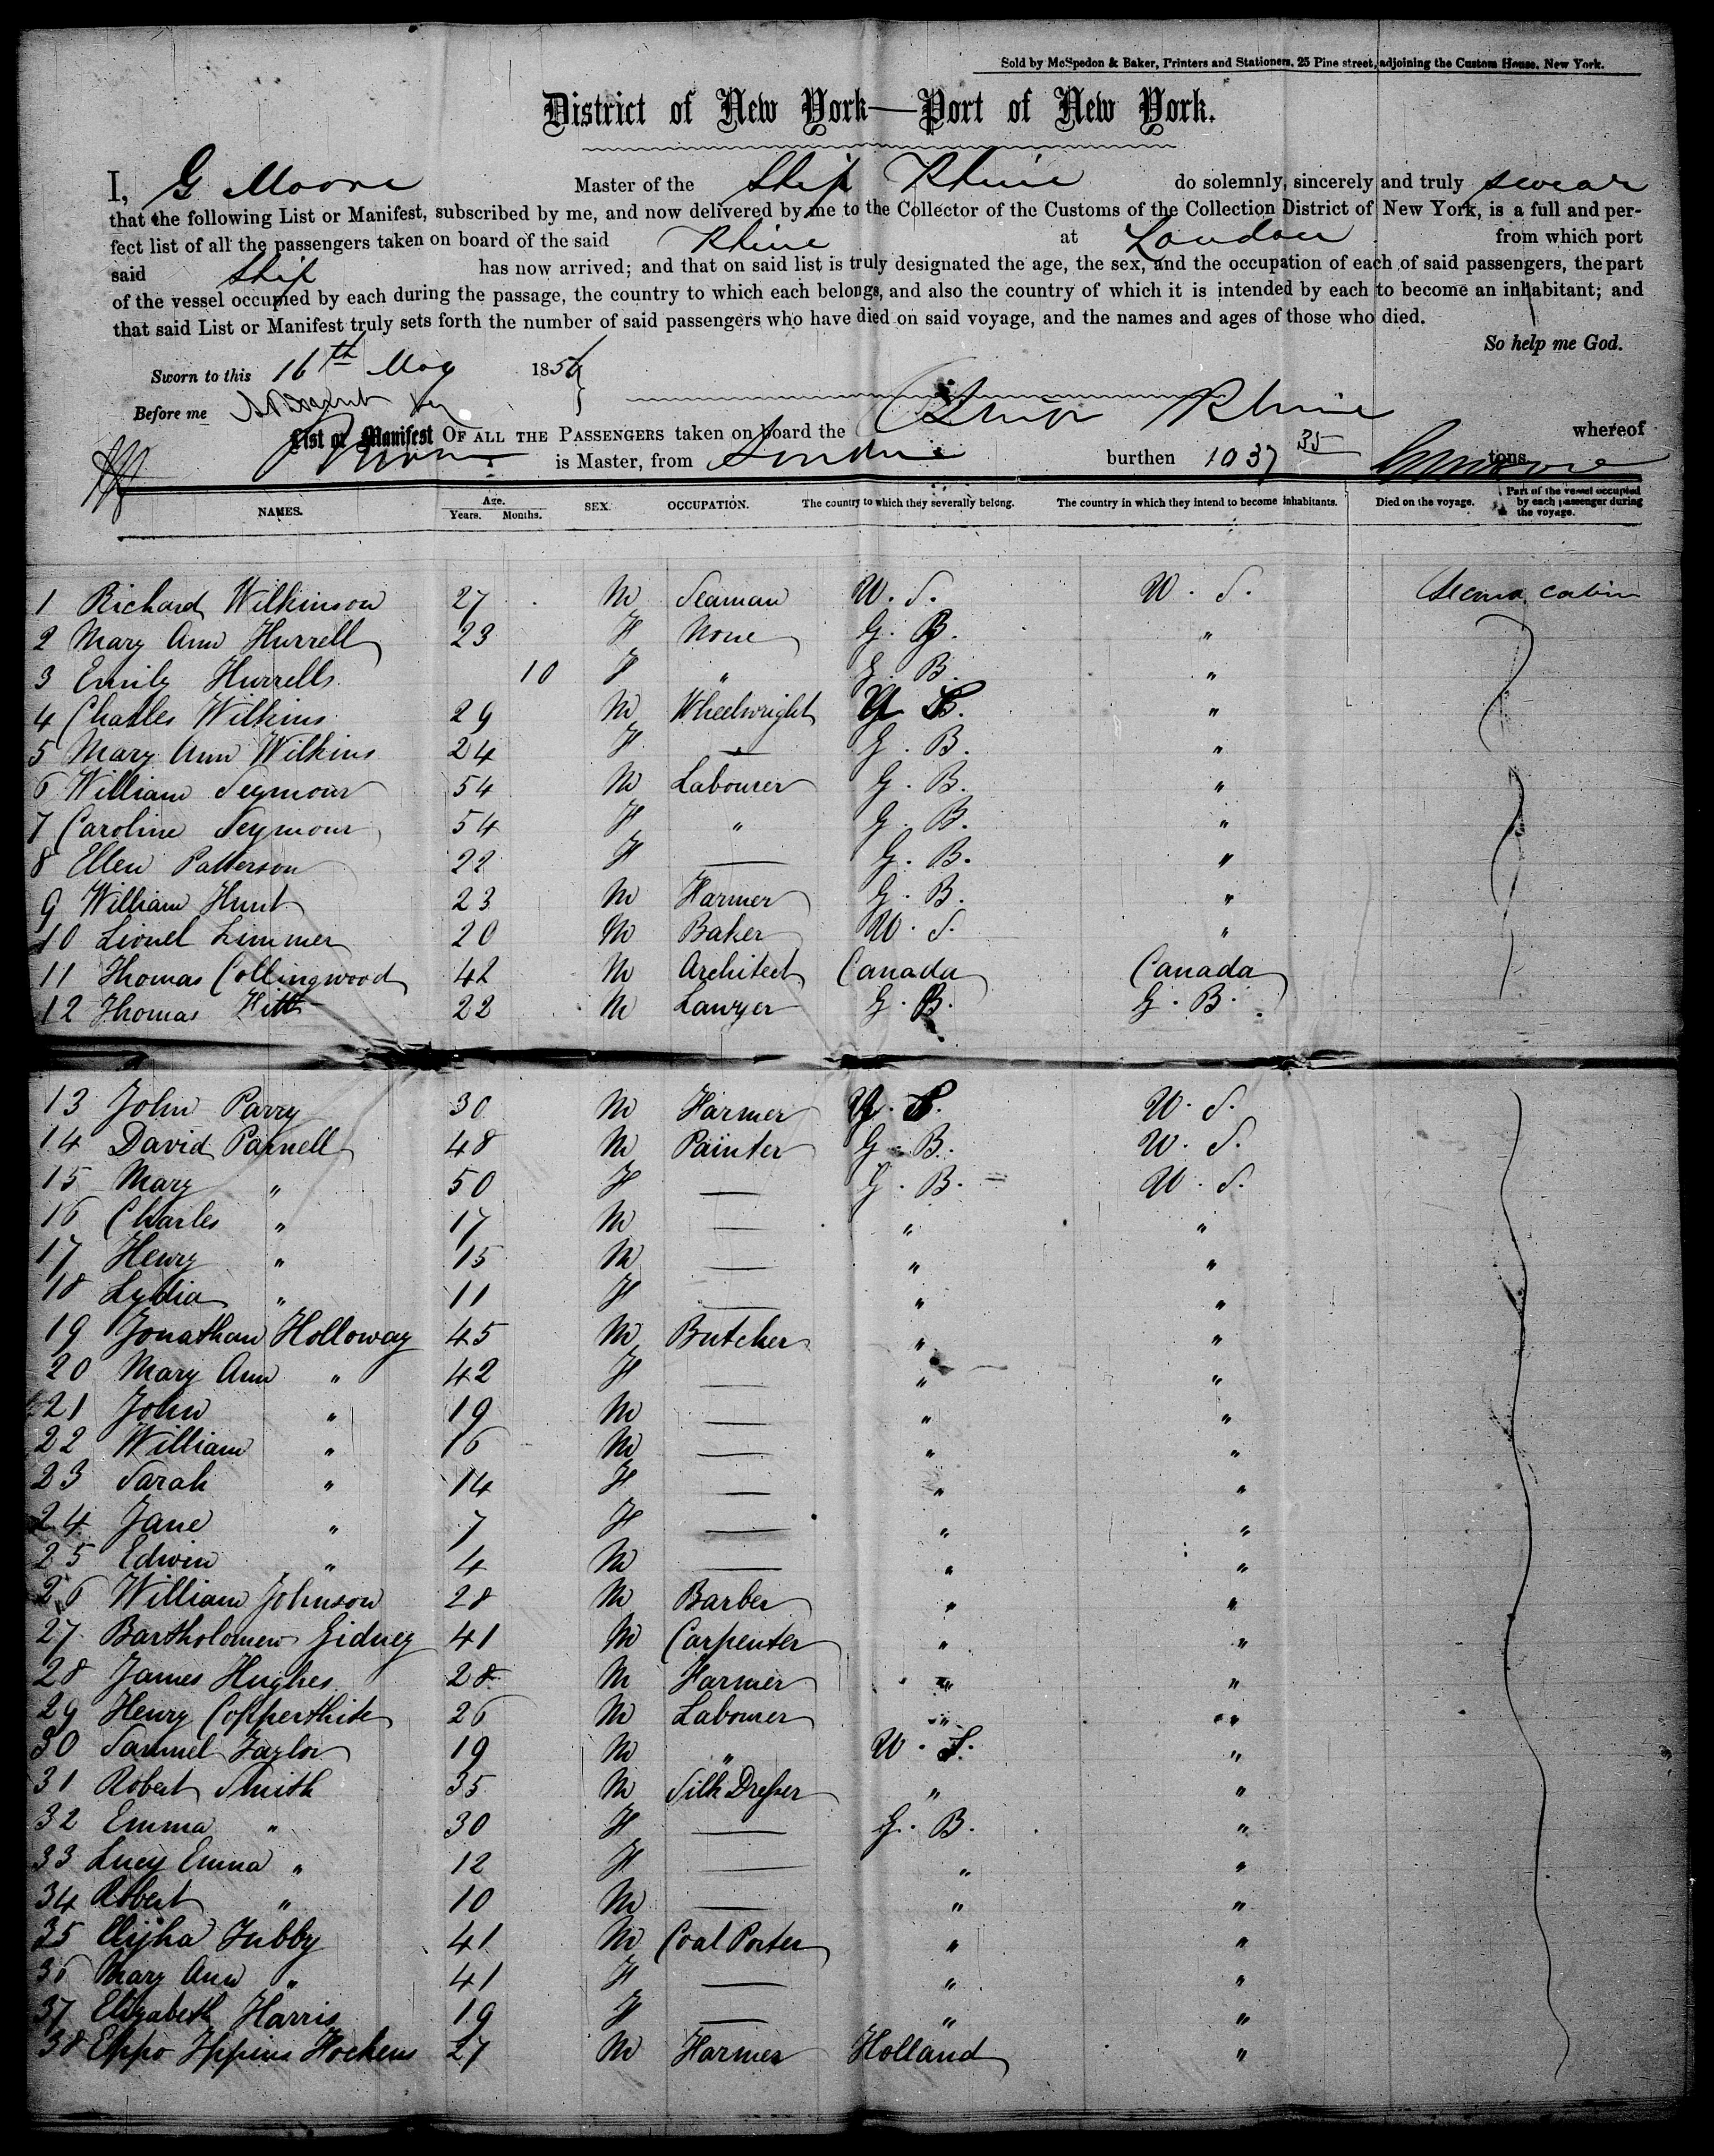 Sold by McSpedon & Baker, Printers and Stationers, 25 Pine street, adjoining the Custom House, New York.
District of New York—Port of New York.
I, G Moore Master of the Ship Rhine do solemnly, sincerely and truly swear
that the following List or Manifest, subscribed by me, and now delivered by me to the Collector of the Customs of the Collection District of New York, is a full and per-
fect list of all the passengers taken on board of the said Rhine at London from which port
said Ship has now arrived; and that on said list is truly designated the age, the sex, and the occupation of each of said passengers, the part
of the vessel occupied by each during the passage, the country to which each belongs, and also the country of which it is intended by each to become an inhabitant; and
that said List or Manifest truly sets forth the number of said passengers who have died on said voyage, and the names and ages of those who died.
So help me God.
Sworn to this 16th May 1856
Before me
List or Manifest OF ALL THE PASSENGERS taken on board the Ship Rhine whereof
Moore is Master, from London burthen 1037 35 tons G Moore
NAMES. Age. Years. Months. SEX. OCCUPATION. The country to which they severally belong. The country in which they intend to become inhabitants. Died on the voyage. Part of the vessel occupied by each passenger during the voyage.
1 Richard Wilkinson 27 M Seaman U. S. U. S. Second cabin
2 Mary Ann Hurrell 23 F None G. B. "
3 Emily Hurrells 10 F " G. B. "
4 Charles Wilkins 29 M Wheelwright "
5 Mary Ann Wilkins 24 F — G. B. "
6 William Seymour 54 M Labourer G. B. "
7 Caroline Seymour 54 F " G. B. "
8 Ellen Patterson 22 F — G. B. "
9 William Hunt 23 M Farmer G. B. "
10 Lionel Limmer 20 M Baker U. S. "
11 Thomas Collingwood 42 M Architect Canada Canada
12 Thomas 22 M Lawyer G. B. G. B.
13 John Parry 30 M Farmer U. S. U. S.
14 David Parnell 48 M Painter G. B. U. S.
15 Mary " 50 F — G. B. U. S.
16 Charles " 17 M — " "
17 Henry " 15 M — " "
18 Lydia " 11 F — " "
19 Jonathan Holloway 45 M Butcher " "
20 Mary Ann " 42 F — " "
21 John " 19 M — " "
22 William " 16 M — " "
23 Sarah " 14 F — " "
24 Jane " 7 F — " "
25 Edwin " 4 M — " "
26 William Johnson 28 M Barber " "
27 Bartholomew Gidney 41 M Carpenter " "
28 James Hughes 28 M Farmer " "
29 Henry Copperthite 26 M Labourer " "
30 Samuel Taylor 19 M " U. S. "
31 Robert Smith 35 M Silk Dresser " "
32 Emma " 30 F — G. B. "
33 Lucy Emma " 12 F — " "
34 Robert " 10 M — " "
35 Elijha Tubby 41 M Coal Porter " "
36 Mary Ann " 41 F — " "
37 Elizabeth Harris 19 F — " "
38 Eppo 27 M Farmer Holland "